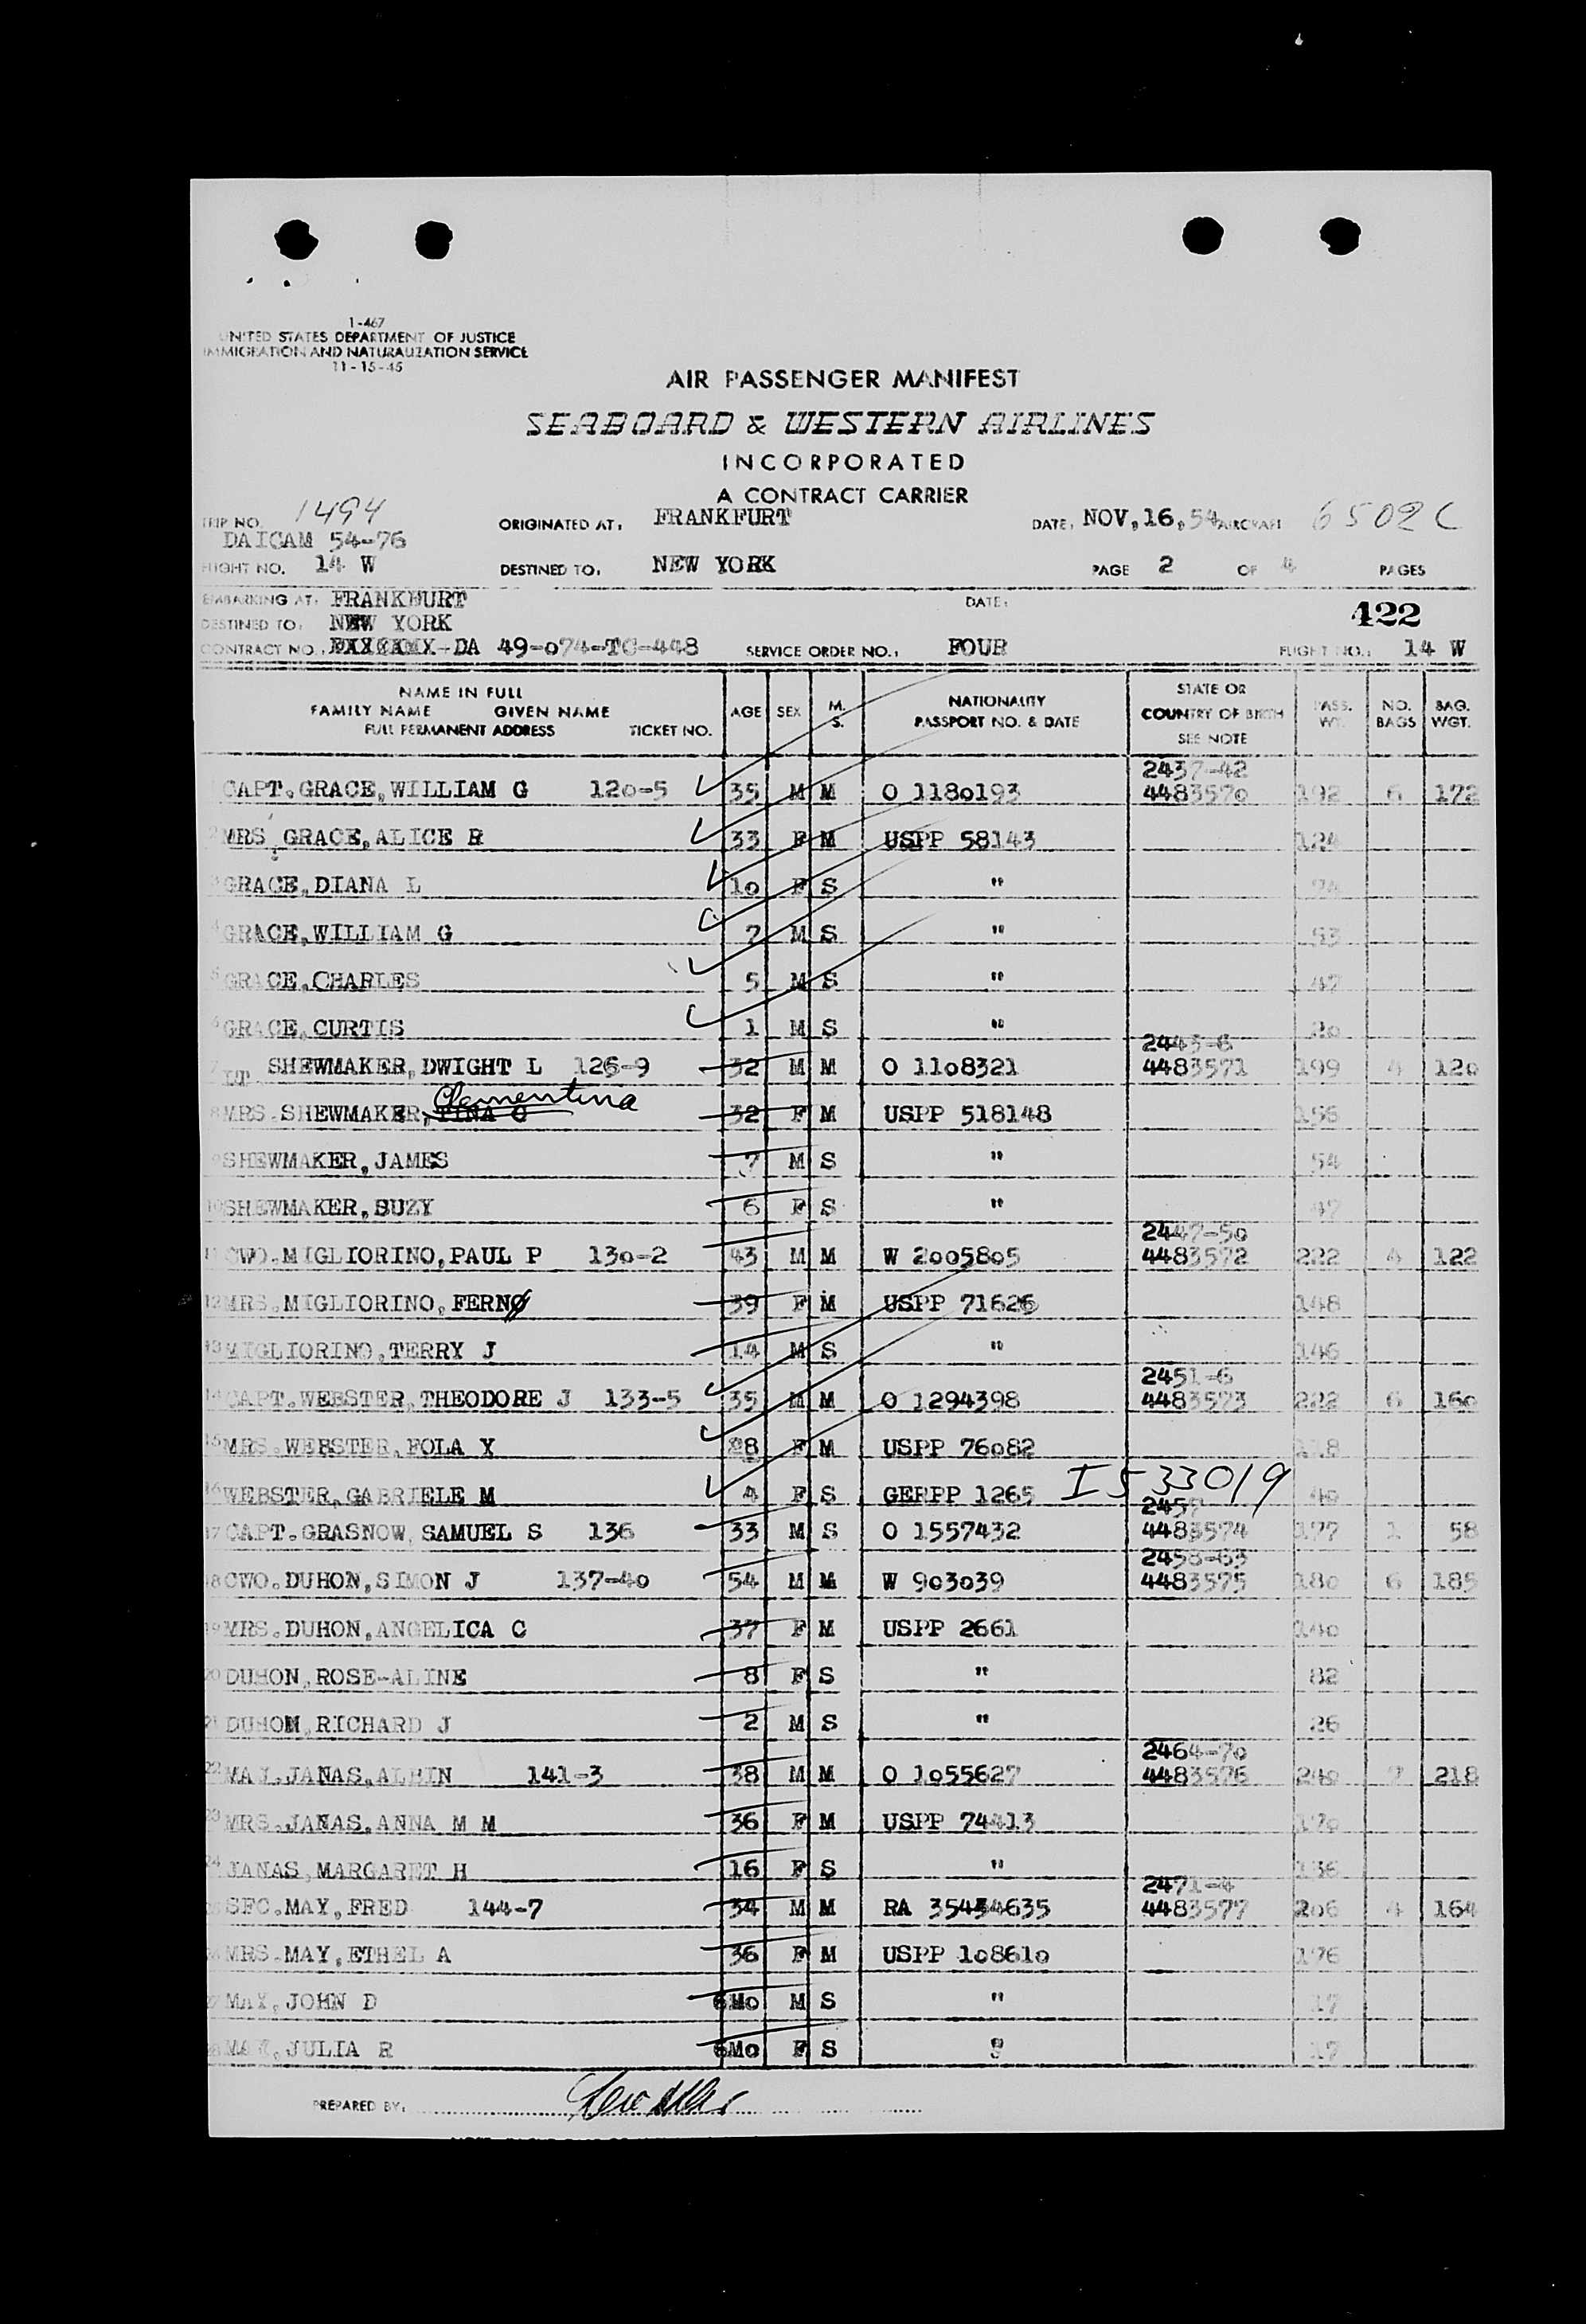 1-467
UNITED STATES DEPARTMENT OF JUSTICE
IMMIGRATION AND NATURALIZATION SERVICE
11-15-45
AIR PASSENGER MANIFEST
SEABOARD & WESTERN AIRLINES
INCORPORATED
A CONTRACT CARRIER
TRIP NO. 1494 ORIGINATED AT: FRANKFURT DATE: NOV,16,54 AIRCRAFT 6502C
DAICAM 54-76
FLIGHT NO. 14 W DESTINED TO: NEW YORK PAGE 2 OF 4 PAGES
EMBARKING AT: FRANKFURT DATE:
DESTINED TO: NEW YORK 422
CONTRACT NO.: DA 49-074-TC-448 SERVICE ORDER NO.: FOUR FLIGHT NO.: 14 W
NAME IN FULL
FAMILY NAME GIVEN NAME
FULL PERMANENT ADDRESS TICKET NO. AGE SEX M. S. NATIONALITY PASSPORT NO. & DATE STATE OR COUNTRY OF BIRTH SEE NOTE PASS. WT. NO. BAGS BAG. WGT.
2437-42
CAPT.GRACE,WILLIAM G 120-5 35 M M O 1180193 4483570 192 6 172
2 MRS.GRACE,ALICE R 33 F M USPP 58143 124
GRACE,DIANA L 10 F S " 74
4 GRACE,WILLIAM G 7 M S " 53
5 GRACE,CHARLES 5 M S " 47
6 GRACE,CURTIS 1 M S " 20
2443-6
7 LT SHEWMAKER,DWIGHT L 126-9 32 M M O 1108321 4483571 199 4 120
Clementina
8 MRS.SHEWMAKER,TINA C 32 F M USPP 518148 156
9 SHEWMAKER,JAMES 7 M S " 54
10 SHEWMAKER,SUZY 6 F S " 47
2447-50
11 CWO.MIGLIORINO,PAUL P 130-2 43 M M W 2005805 4483572 222 4 122
12 MRS.MIGLIORINO,FERNO 39 F M USPP 71626 148
13 MIGLIORINO,TERRY J 14 M S " 146
2451-6
14 CAPT.WEBSTER,THEODORE J 133-5 35 M M O 1294398 4483573 222 6 160
15 MRS.WEBSTER,FOLA X 28 F M USPP 76082 118
16 WEBSTER,GABRIELE M 4 F S GERPP 1265 I533019 40
2457
17 CAPT.GRASNOW,SAMUEL S 136 33 M S O 1557432 4483574 177 1 58
2458-63
18 CWO.DUHON,SIMON J 137-40 54 M M W 903039 4483575 180 6 185
19 MRS.DUHON,ANGELICA C 37 F M USPP 2661 140
20 DUHON,ROSE-ALINE 8 F S " 82
21 DUHOM,RICHARD J 2 M S " 26
2464-70
22 MAJ.JANAS,ALBIN 141-3 38 M M O 1055627 4483576 240 7 218
23 MRS.JANAS,ANNA M M 36 F M USPP 74413 170
24 JANAS,MARGARET H 16 F S " 136
2471-4
SFC.MAY,FRED 144-7 34 M M RA 35434635 4483577 206 4 164
MRS.MAY,ETHEL A 36 F M USPP 108610 176
MAY,JOHN D 6Mo M S " 17
MAY,JULIA R 6Mo F S " 17
PREPARED BY: